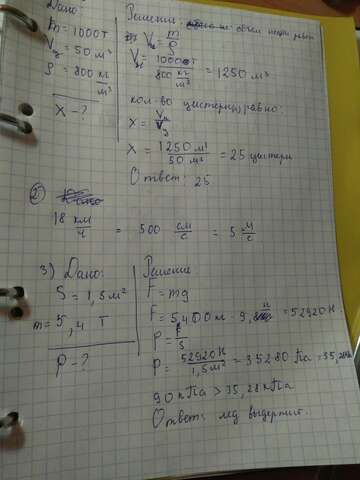 Дано:
m = 1000т
Vц = 50 м³
ρ = 800 кг/м³
X - ?
Решение: объем нефти равен
Vн = m/ρ
Vн = 1000т / 800 кг/м³ = 1250 м³
кол-во цистерн равно:
X = Vн/Vц
X = 1250 м³ / 50 м³ = 25 цистерн
Ответ: 25
2)
18 км/ч = 500 см/с = 5 м/с
3) Дано:
S = 1,5 м²
m = 5,4 т
P - ?
Решение
F = mg
F = 5,400 кг · 9,8 = 52920 Н.
P = F/S
P = 52920 Н / 1,5 м² = 35280 Па = 35,28кПа
90 кПа > 35,28 кПа
Ответ: лед выдержит.